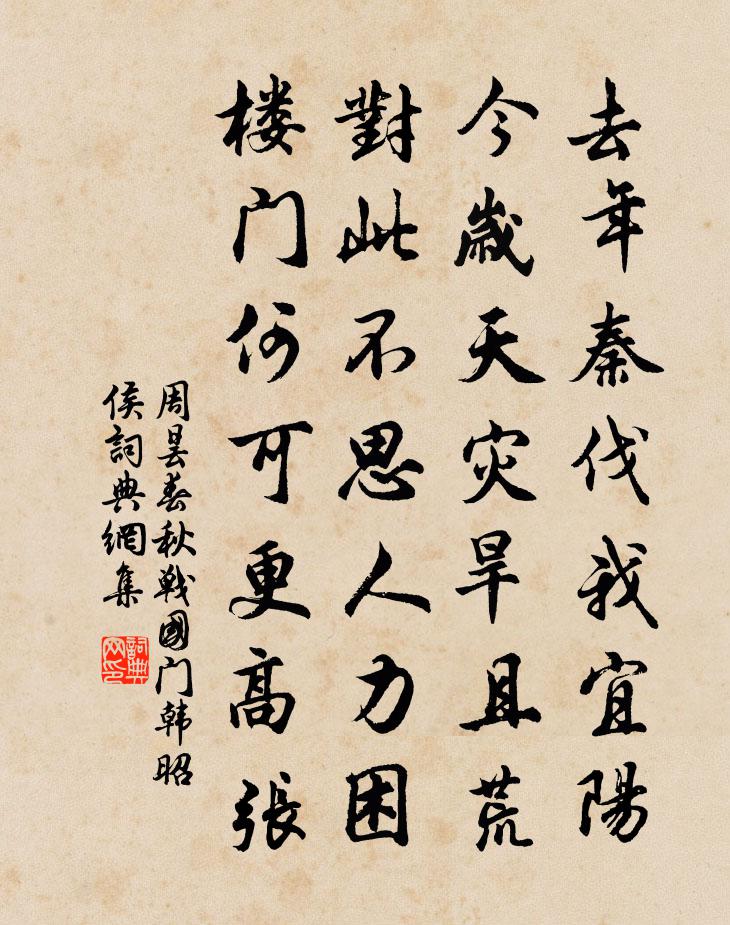 去年秦伐我宜陽
今歲天灾旱且荒
對此不思人力困
楼门何可更高張
周昙春秋戰國门韩昭
侯詞典網集
詞典网印